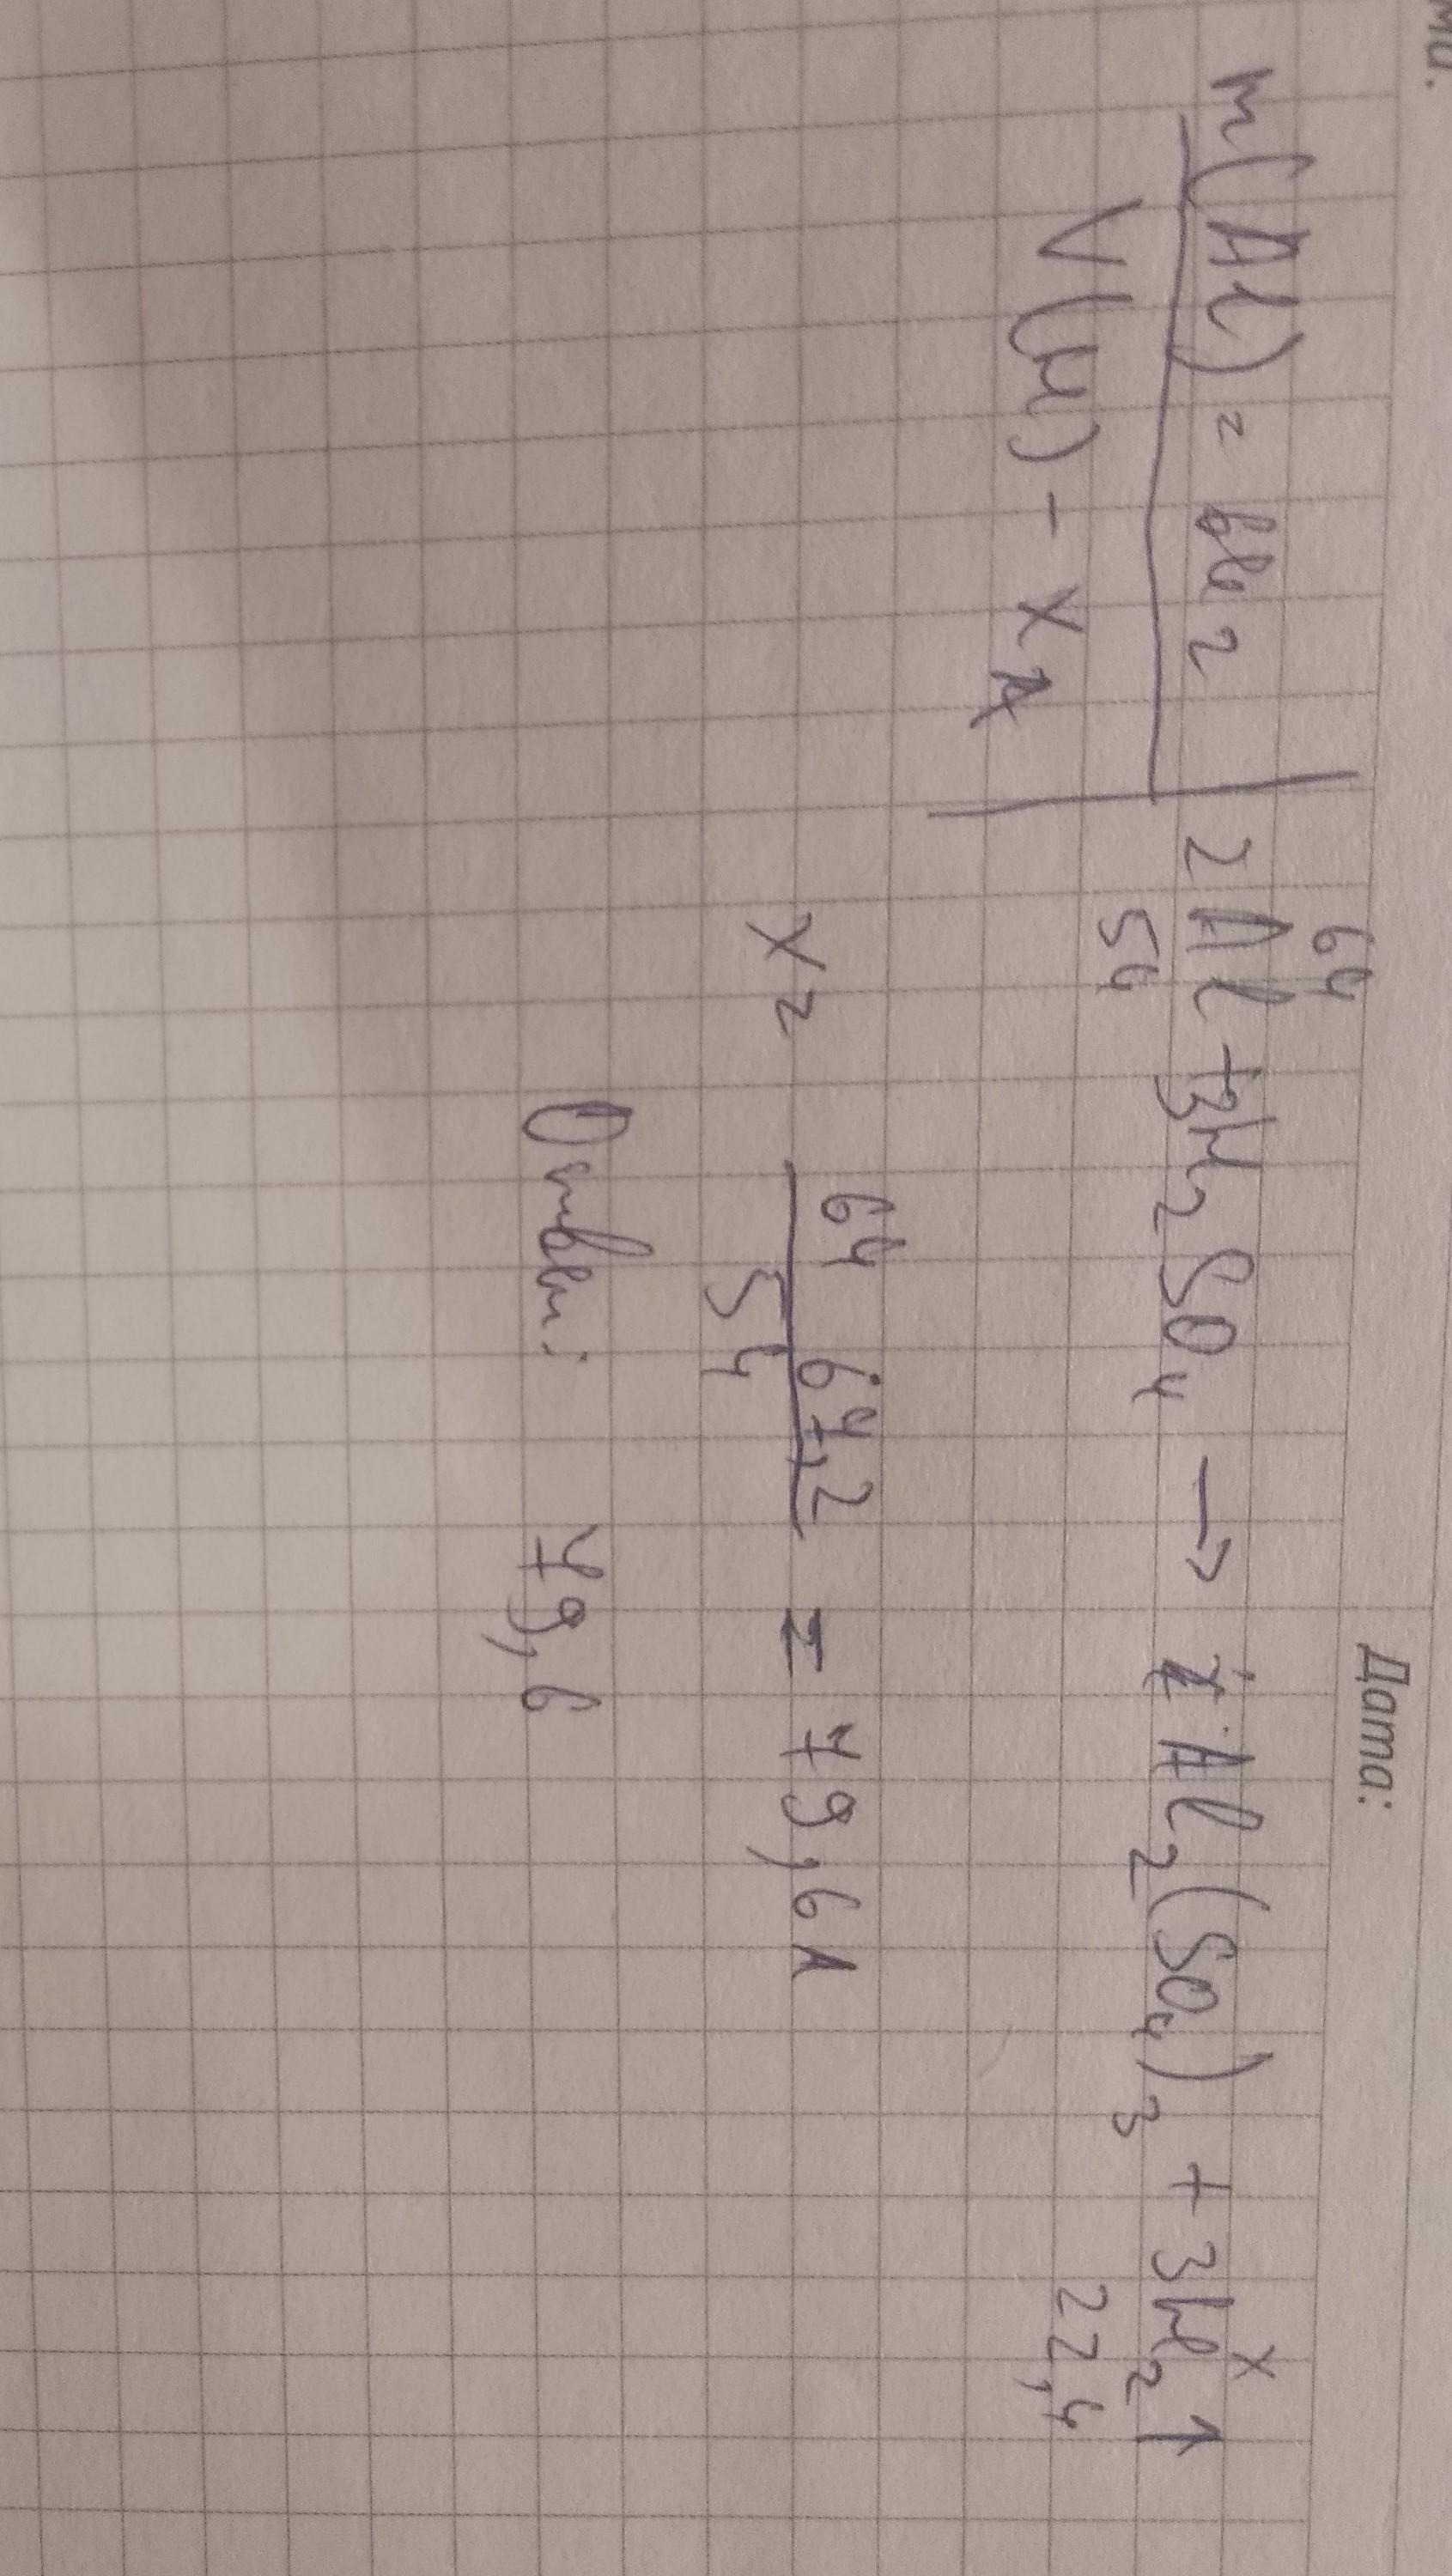 Дата:
m(Al) = 64 г
V(H) - x л
64 x
2Al + 3H₂SO₄ → Al₂(SO₄)₃ + 3H₂↑
54 22,4
x = 64 · 67,2 / 54 = 79,6 л
Ответ: 79,6